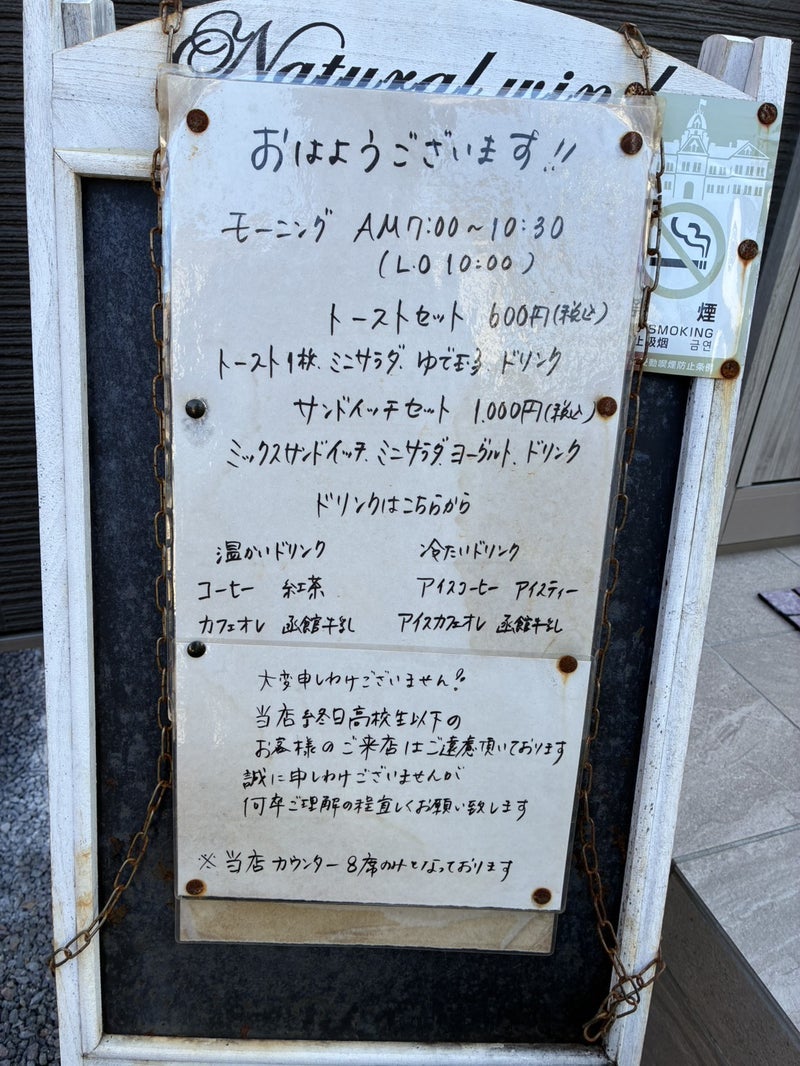 Natural wind
おはようございます!!
モーニング AM 7:00～10:30
(L.O 10:00)
トーストセット 600円(税込)
トースト1枚、ミニサラダ、ゆで玉子、ドリンク
サンドイッチセット 1.000円(税込)
ミックスサンドイッチ、ミニサラダ、ヨーグルト、ドリンク
ドリンクはこちらから
温かいドリンク 冷たいドリンク
コーヒー 紅茶 アイスコーヒー アイスティー
カフェオレ 函館牛乳 アイスカフェオレ 函館牛乳
大変申しわけございません!
当店は終日高校生以下の
お客様のご来店はご遠慮頂いております
誠に申しわけございませんが
何卒ご理解の程宜しくお願い致します
※当店カウンター8席のみとなっております
煙
SMOKING
吸烟 금연
動喫煙防止条例